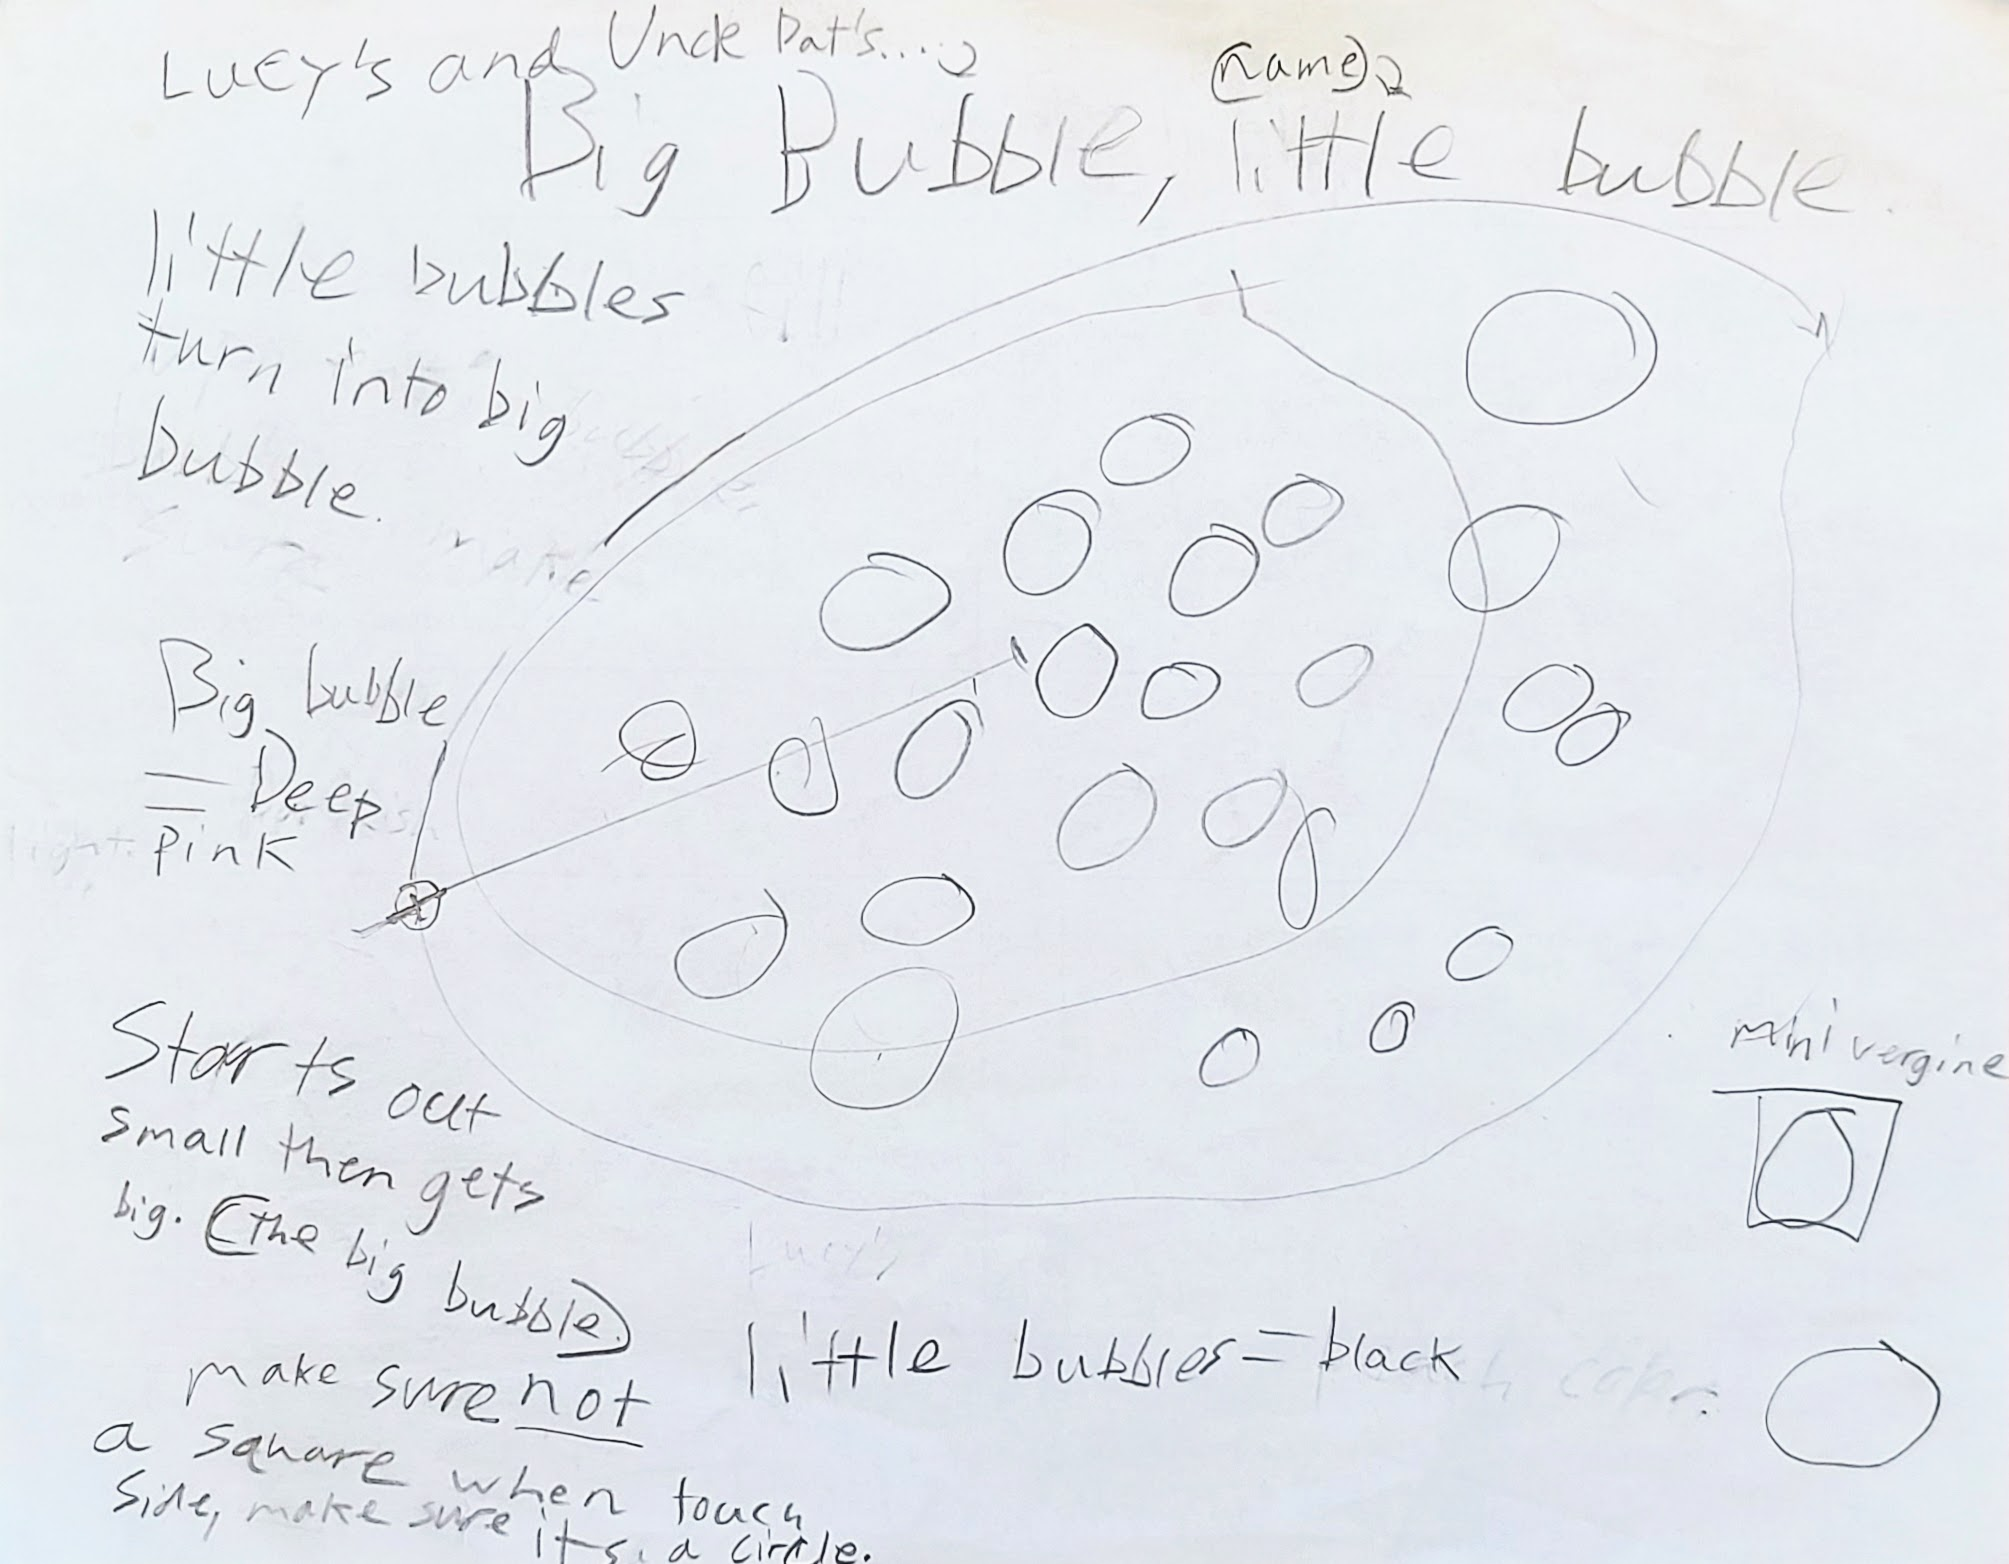 Lucy's and Uncle Dat's....
(name)
Big Bubble, little bubble.
little bubbles
turn into big
bubble.
Big bubble
= Deep
pink
Starts out
small then gets
big. (the big bubble.)
make sure not
a square when touch
side, make sure it's a circle.
little bubbles = black
mini vergine